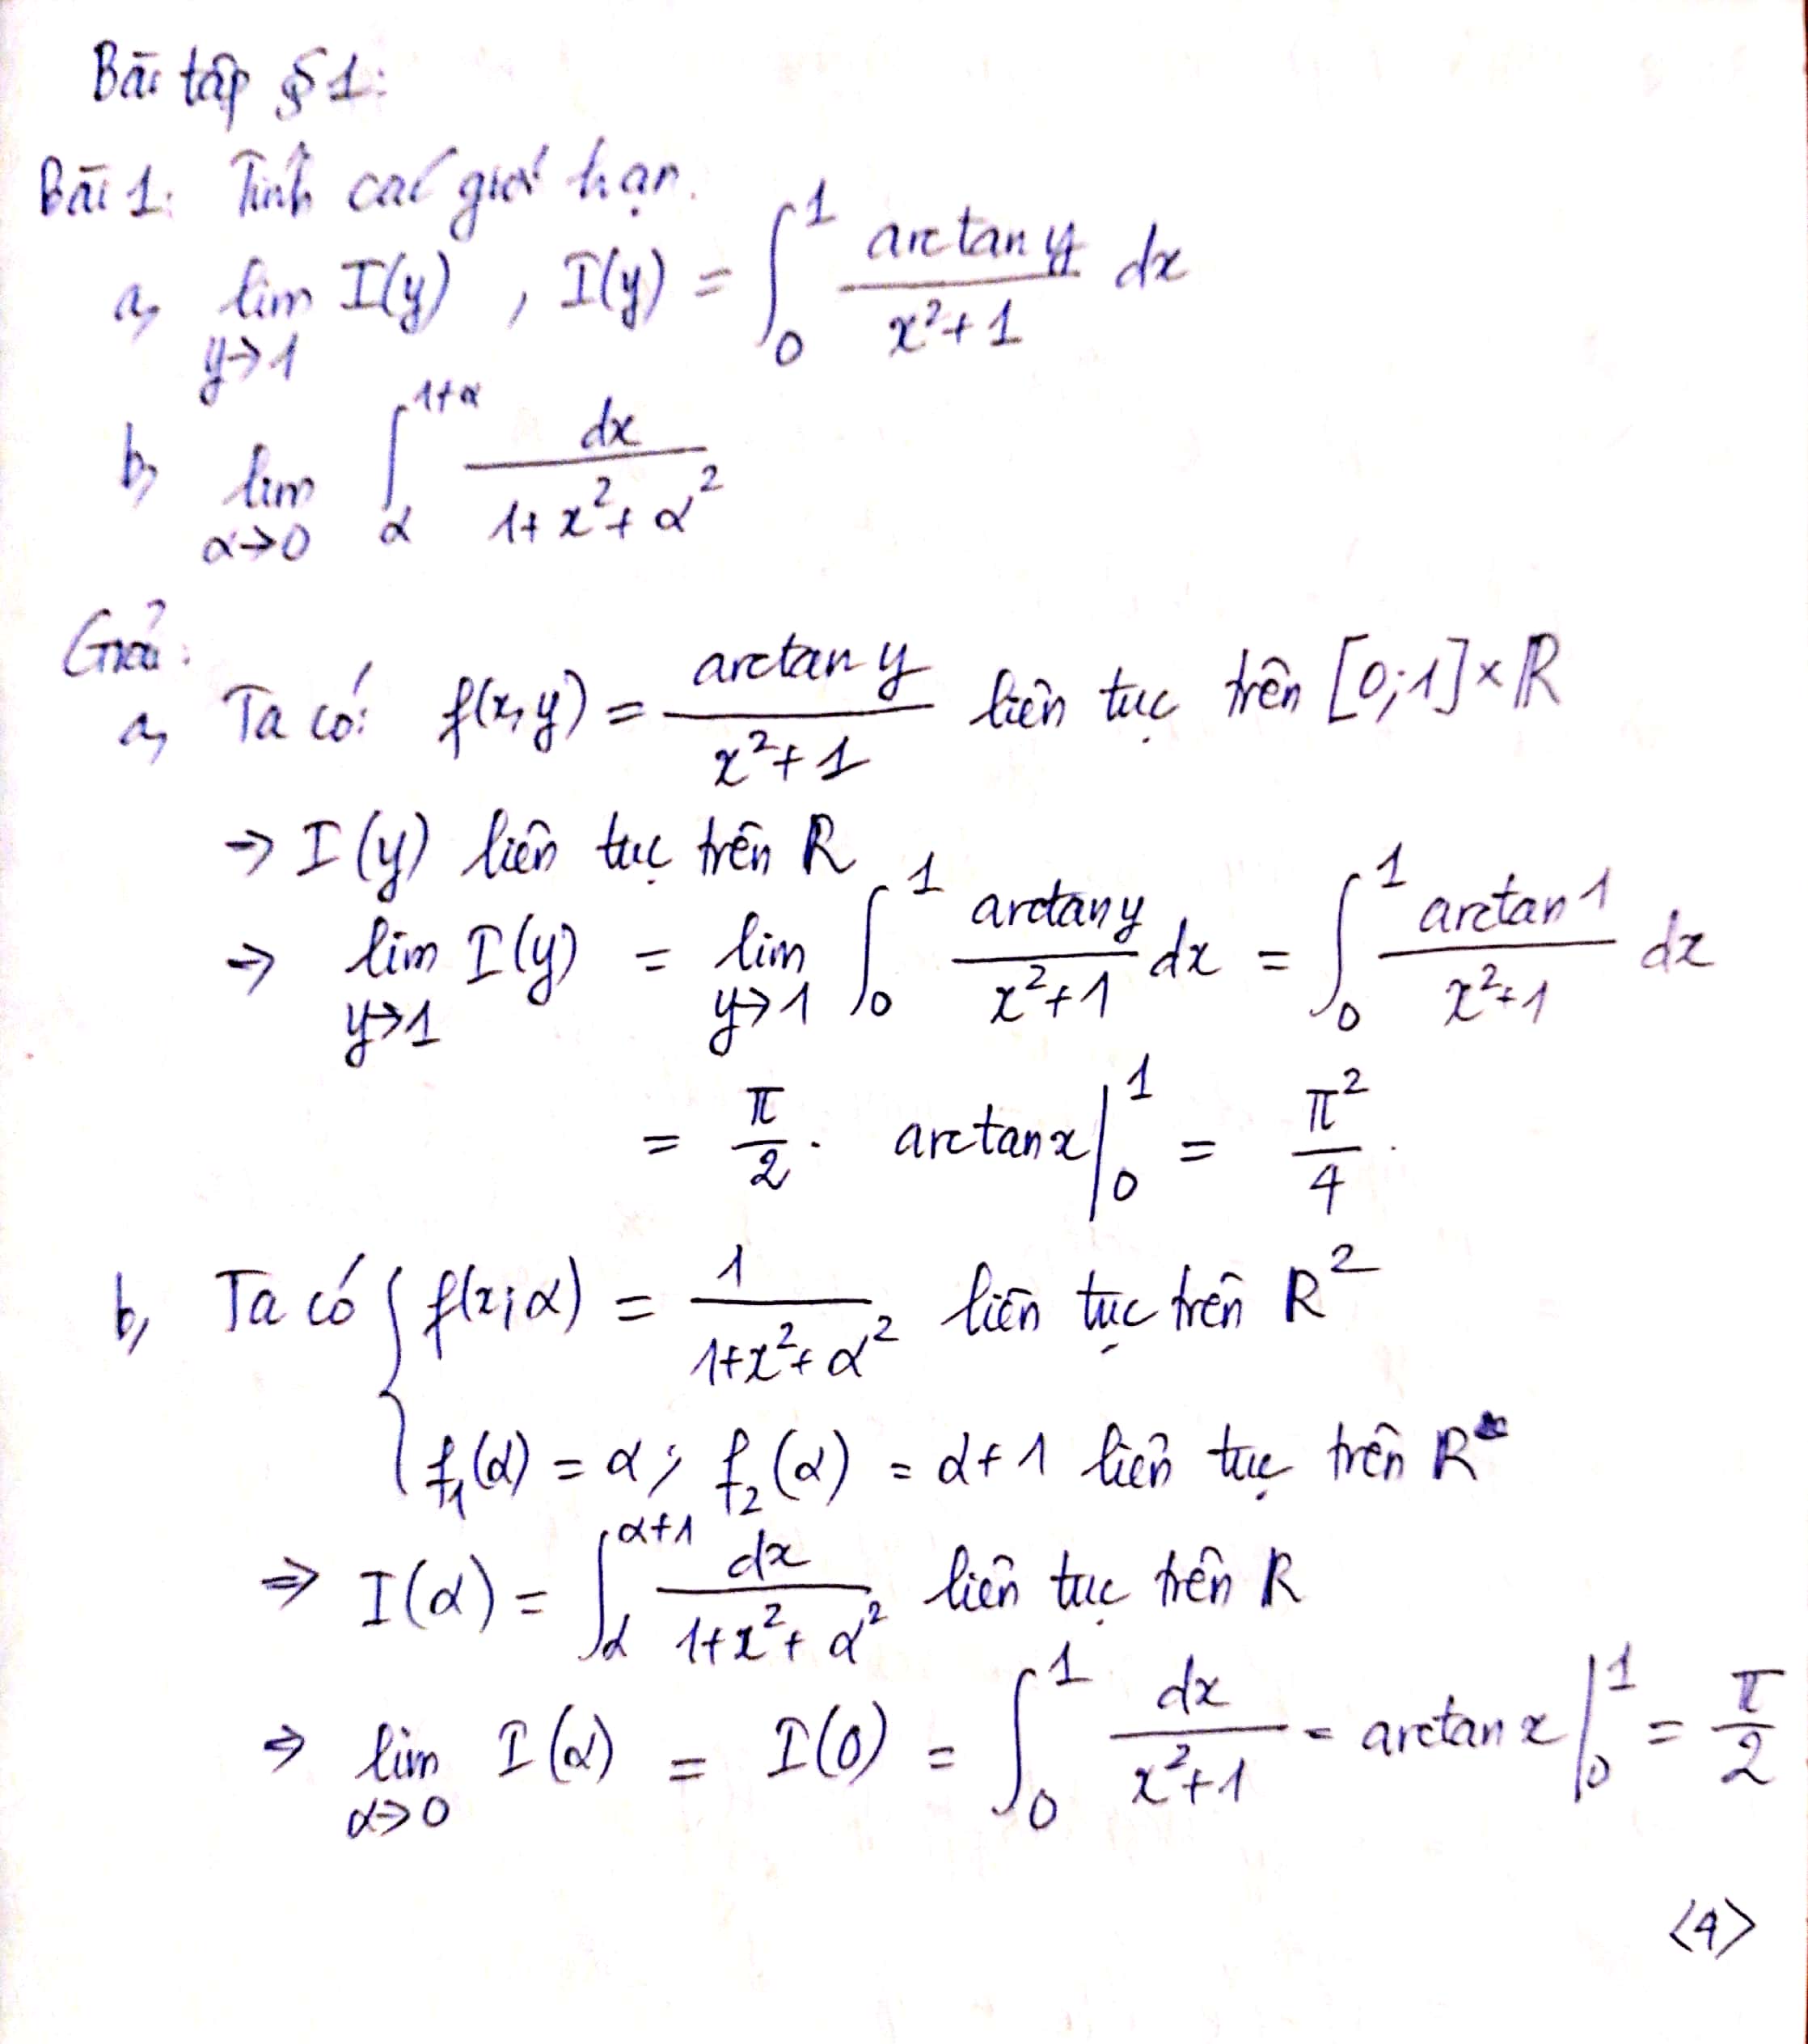 Bài tập §1:
Bài 1: Tính các giới hạn.
a, lim_{y→1} I(y) , I(y) = ∫_0^1 arctan y / (x²+1) dx
b, lim_{α→0} ∫_α^{1+α} dx / (1+x²+α²)
Giải:
a, Ta có: f(x,y) = arctan y / (x²+1) liên tục trên [0;1]×ℝ
→ I(y) liên tục trên R
→ lim_{y→1} I(y) = lim_{y→1} ∫_0^1 arctan y / (x²+1) dx = ∫_0^1 arctan 1 / (x²+1) dx
= π/2 . arctan x |_0^1 = π²/4 .
b, Ta có { f(x;α) = 1 / (1+x²+α²) liên tục trên R²
f₁(α) = α ; f₂(α) = α+1 liên tục trên R
⇒ I(α) = ∫_α^{α+1} dx / (1+x²+α²) liên tục trên R
⇒ lim_{α→0} I(α) = I(0) = ∫_0^1 dx / (x²+1) = arctan x |_0^1 = π/2
<4>